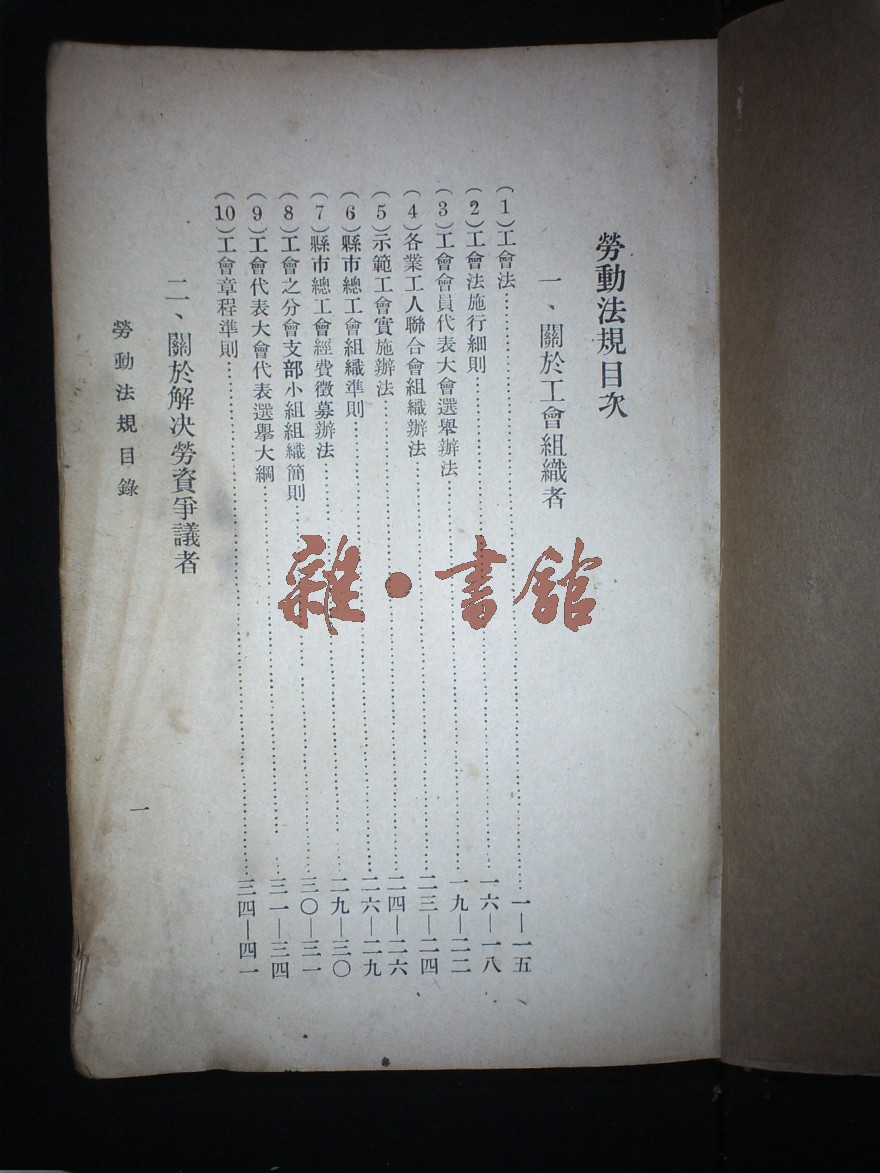 勞動法規目次
一、關於工會組織者
(1)工會法……一—一五
(2)工會法施行細則……一六—一八
(3)工會會員代表大會選舉辦法……一九—二二
(4)各業工人聯合會組織辦法……二三—二四
(5)示範工會實施辦法……二四—二六
(6)縣市總工會組織準則……二六—二九
(7)縣市總工會經費徵募辦法……二九—三〇
(8)工會之分會支部小組組織簡則……三〇—三一
(9)工會代表大會代表選舉大綱……三一—三四
(10)工會章程準則……三四—四一
二、關於解決勞資爭議者
勞動法規目錄
一
雜·書館